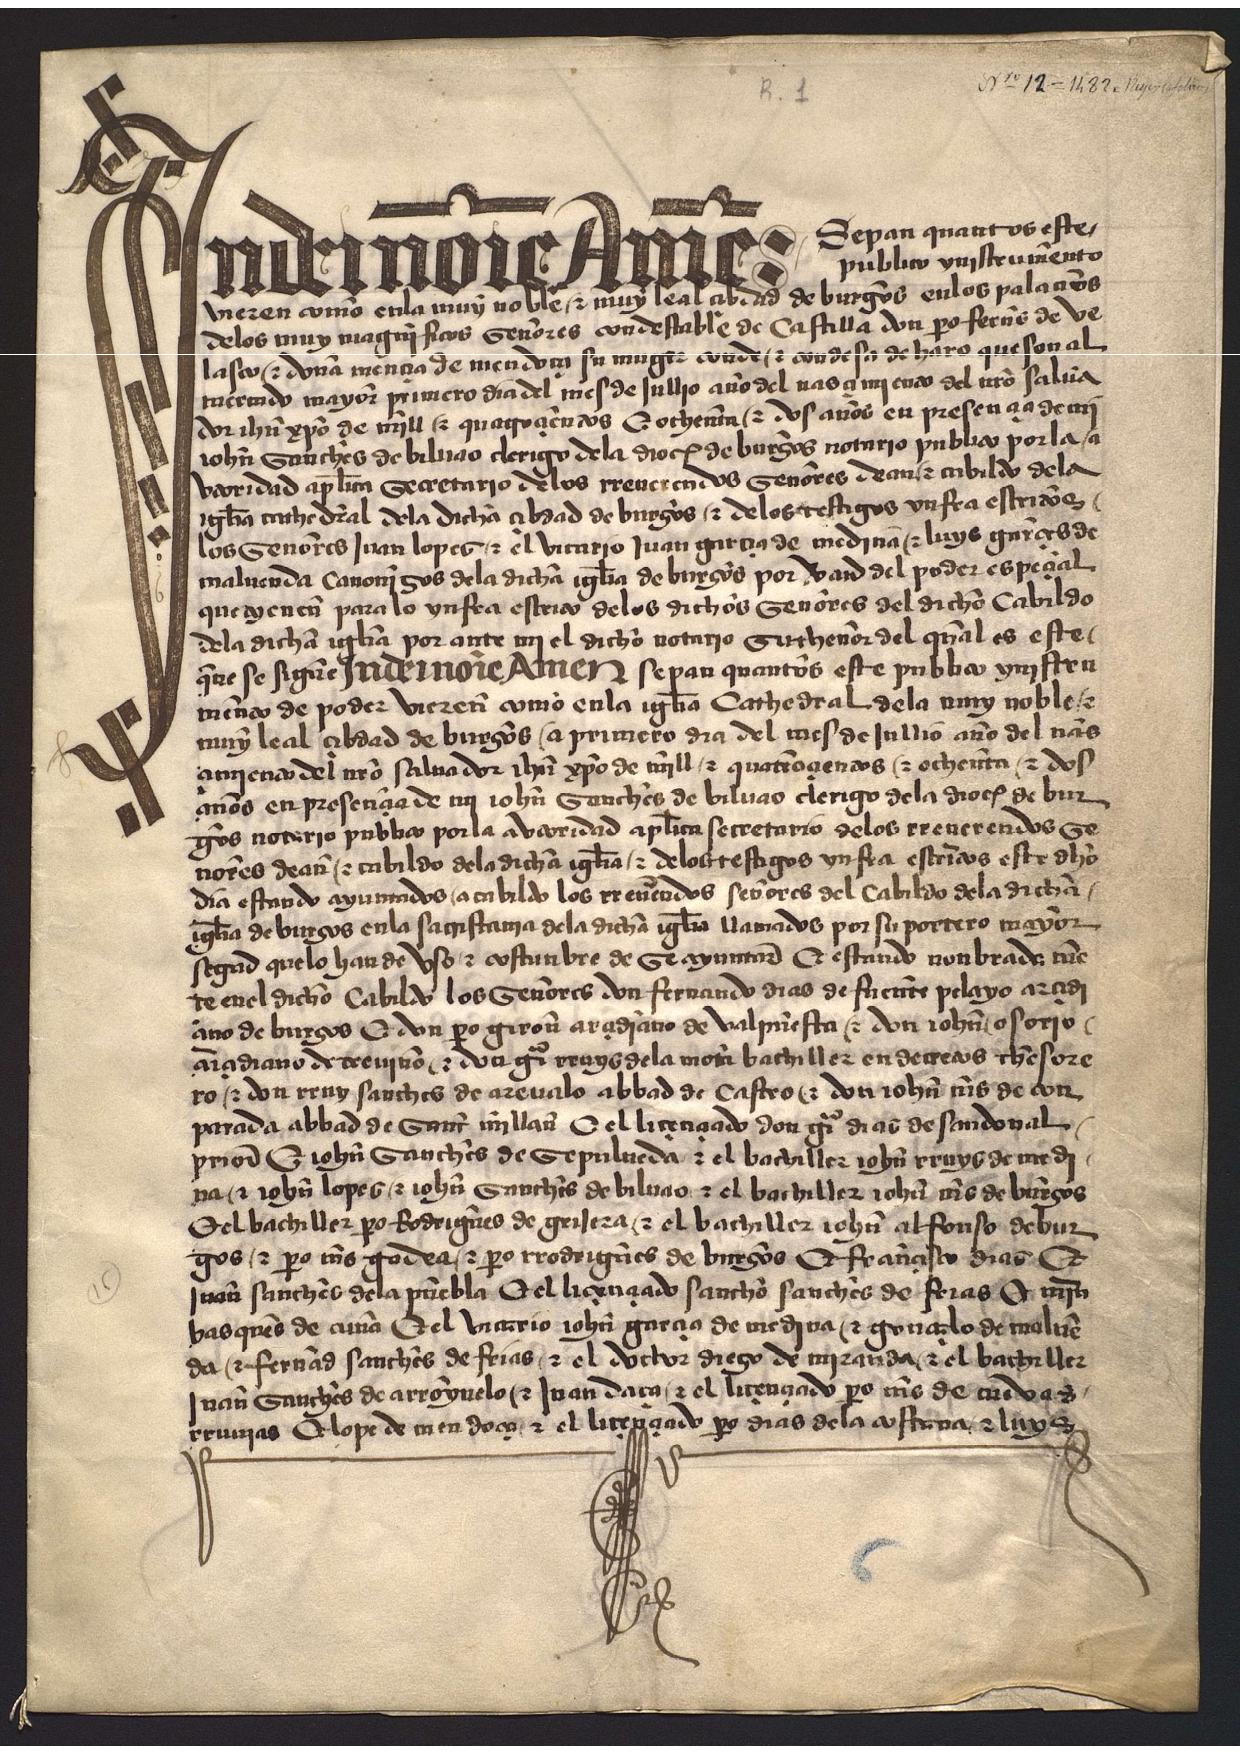 R. 1
Nro 12 = 1482.
In dei no͞ie Ame͞: Sepan quantos este
publico ynstrume͞nto
vieren como enla muy noble ⁊ muy leal cibdad de burgos enlos palaçios
delos muy magnificos Señores condestable de Castilla don po ferrñs de ve
lasco ⁊ doña mençia de mendoça su muger conde ⁊ condesa de haro que son al
mercado mayor primero dia del mes de Jullio año del nasçimiento del nro͞ salua
dor ihũ xpo͞ de mĩll ⁊ quatroçientos E ochenta ⁊ dos años en presençia de mi
iohñ Sanches de biluao clerigo dela dioc͞ de burgos notario publico por la a
uctoridad apl͞ica Secretario delos rreuerendos Señores dean ⁊ cabildo dela
igl͞ia cathedral dela dicha çibdad de burgos ⁊ delos testigos ynfra escriptos
los Señores Juan lopes ⁊ el vicario Juan garçia de medina ⁊ luys garçes de
maluenda Canonigos dela dicha igl͞ia de burgos por vertud del poder espeçial
que tyenen para lo ynfra escripto delos dichos Señores del dicho Cabildo
dela dicha igl͞ia por ante mi el dicho notario Su thenor del qual es este
que se sigue In dei no͞ie Amen sepan quantos este publico ynstru
mento de poder vieren como enla igl͞ia Cathedral dela muy noble ⁊
muy leal çibdad de burgos a primero dia del mes de Jullio año del nas
çimiento del nro͞ saluador ihũ xpo͞ de mĩll ⁊ quatroçientos ⁊ ochenta ⁊ dos
años en presençia de mi iohñ Sanches de biluao clerigo dela dioc͞ de bur
gos notario publico por la auctoridad apl͞ica secretario delos rreuerendos Se
ñores dean ⁊ cabildo dela dicha igl͞ia ⁊ delos testigos ynfra escriptos este dho͞
dia estando ayuntados a cabildo los rreue͞ndos señores del Cabildo dela dicha
igl͞ia de burgos enla sacristania dela dicha igl͞ia llamados por su portero mayor
segund que lo han de vso ⁊ costunbre de Se ayuntar Et estando nonbrada me͞
te en el dicho Cabildo los Señores don fernando dias de fuente pelayo arçidi
ano de burgos E don po giron arçidiano de valpuesta ⁊ don iohñ osorio
arçidiano de treuiño ⁊ don go͞ rruys dela mota bachiller en decretos thesore
ro ⁊ don rruy sanches de areualo abbad de Castro ⁊ don iohñ mĩs de con
parada abbad de Sant mĩllan E el liçençiado don go͞ dias de sandoual
prior E iohñ Sanches de Sepulueda ⁊ el bachiller iohñ rruys de medi
na ⁊ iohñ lopes ⁊ iohñ Sanches de biluao ⁊ el bachiller iohñ mĩs de burgos
E el bachiller po Rodrigues de grisera ⁊ el bachiller iohñ alfonso de bur
gos ⁊ po mĩs godea ⁊ po rrodrigues de burgos Et françisco dias Et
Juan sanches dela puebla E el liçençiado sancho sanches de frias Et mĩn
basques de cuña E el vicario iohñ garçia de medina ⁊ gonçalo de malue͞
da ⁊ fernãd sanches de frias ⁊ el doctor diego de miranda ⁊ el bachiller
Juan Sanches de arroyuelo ⁊ Juan daça ⁊ el liçençiado po mĩs de cueuas
rruuias E lope de mendoça ⁊ el liçençiado po dias dela costana ⁊ luys